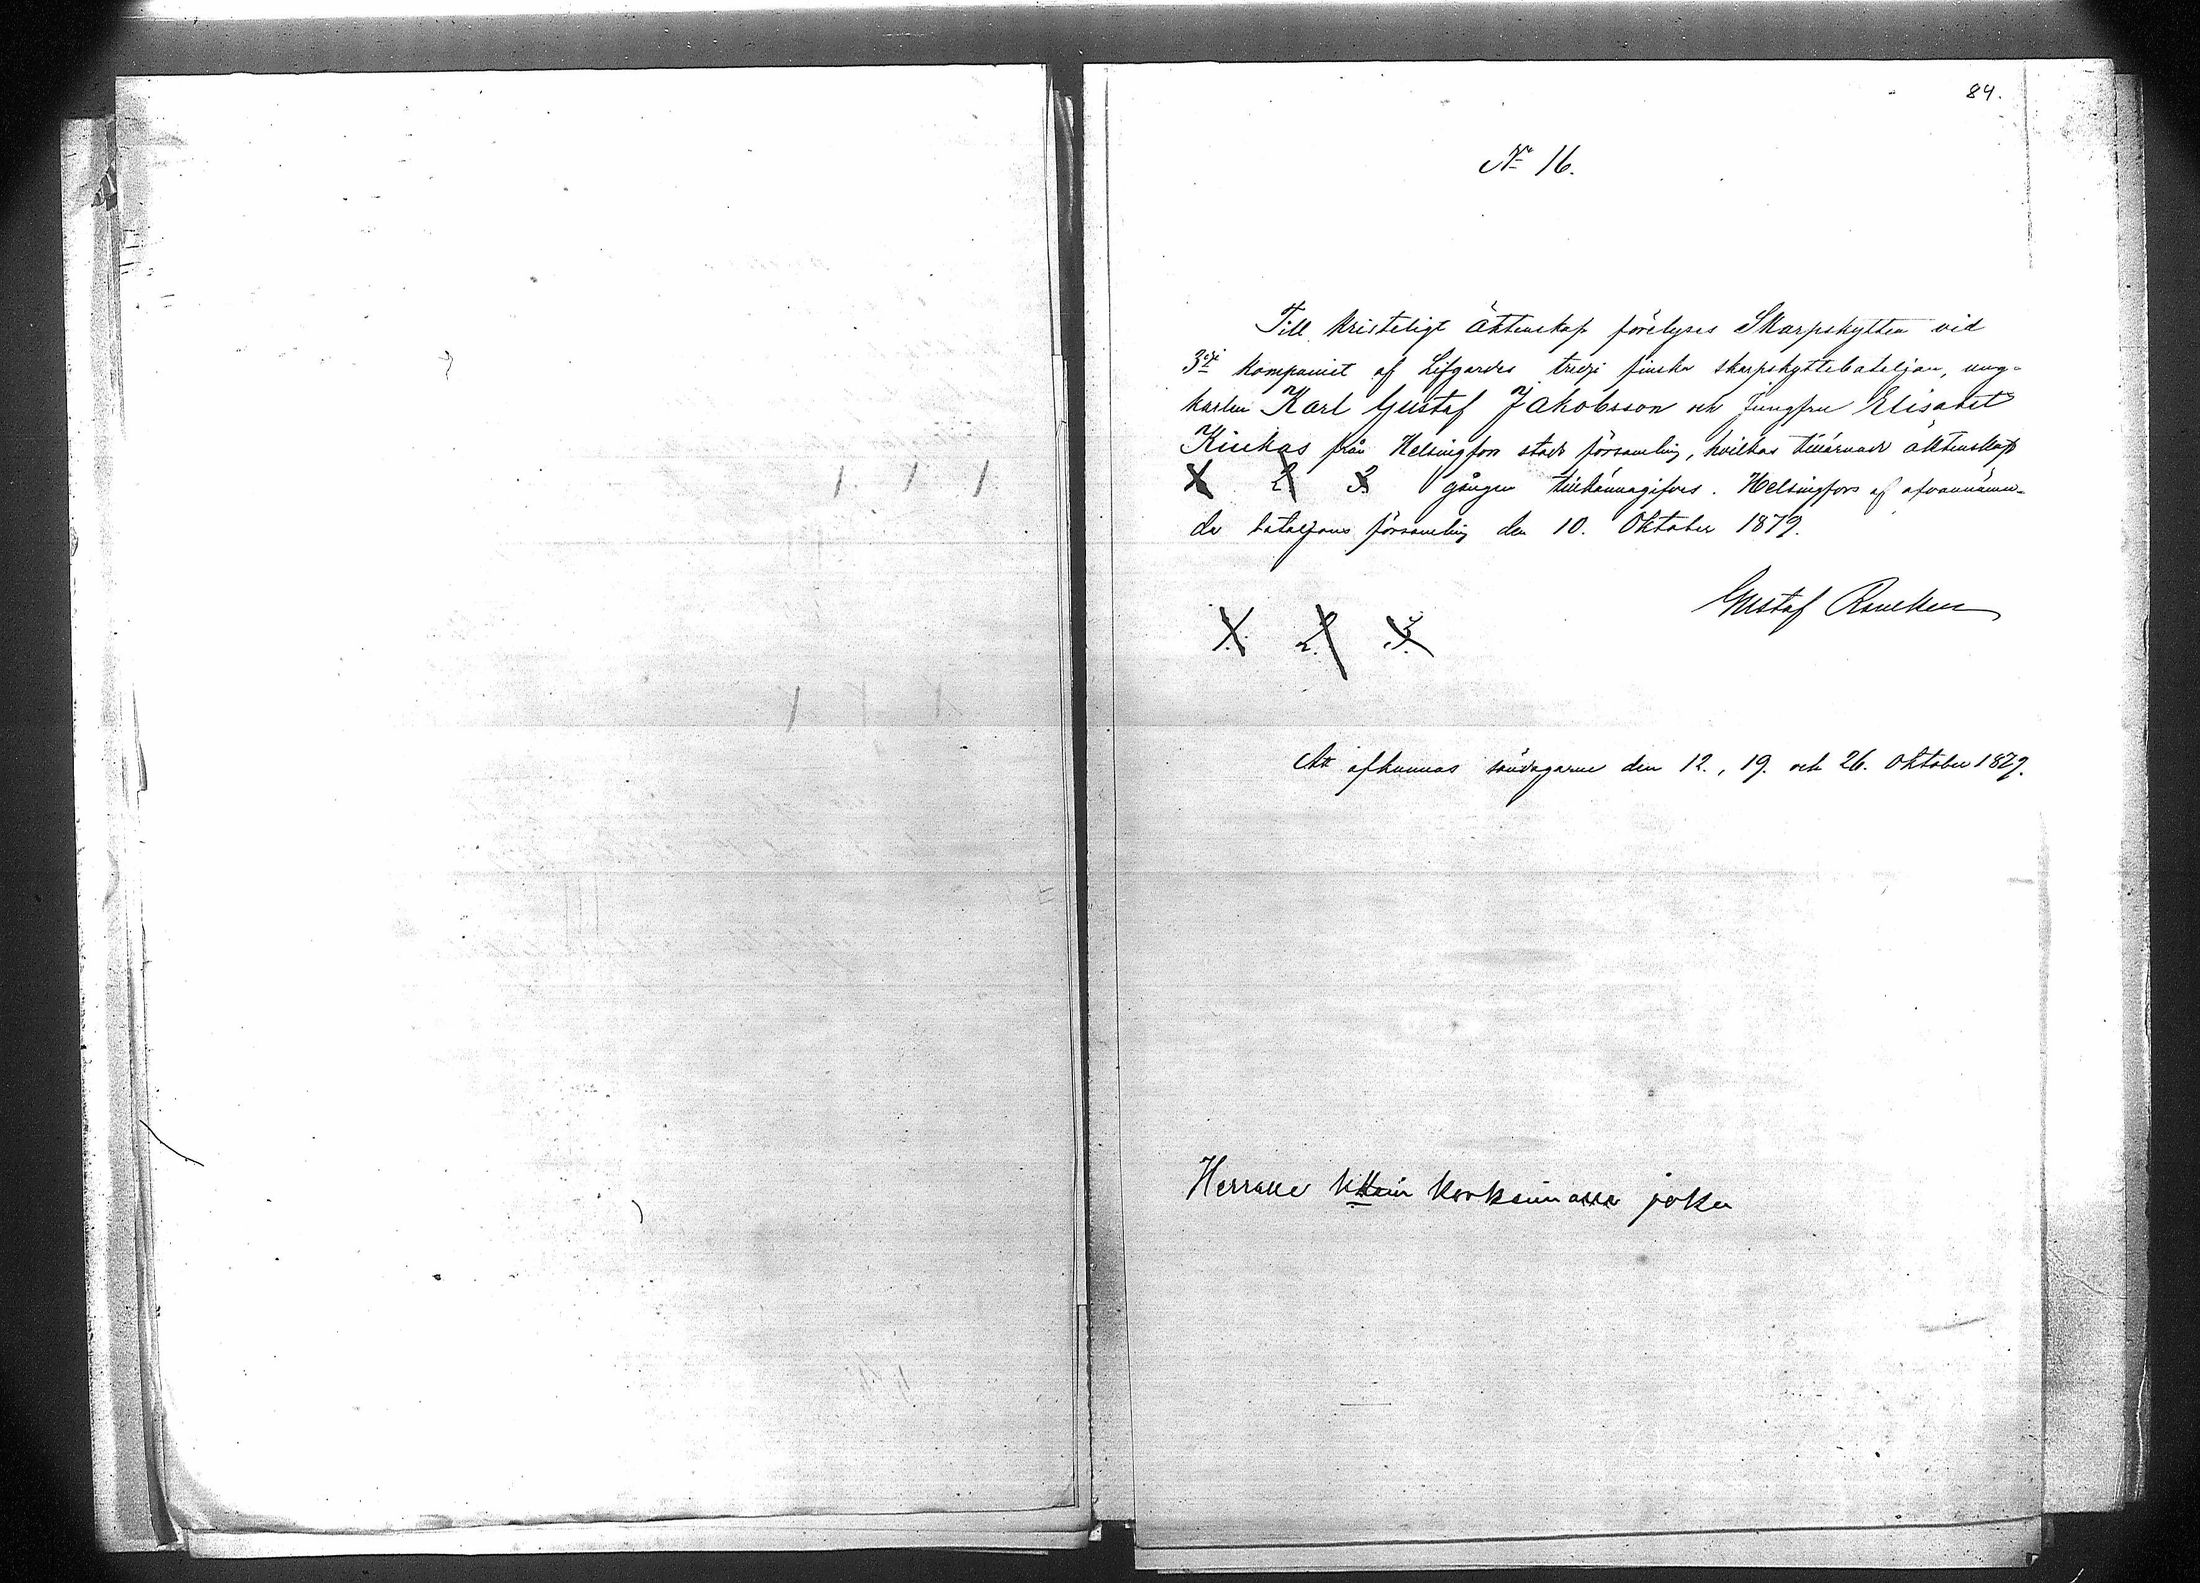 84.
Nº 16.
Till kristeligt äktenskap förelyses Skarpskytten vid
3dje kompaniet af Lifgardes tredje finska skarpskyttebataljon, ung-
karlen Karl Gustaf Jakobsson och Jungfru Elisabet
från Helsingfors stads församling, hvilkas tillärnade äktenskap
1. 2. 3. gången tillkännagifves. Helsingfors af ofvannämn-
da bataljons församling den 10. Oktober 1879.
Gustaf
1. 2. 3.
Att afkunnas söndagarne den 12., 19. och 26. Oktober 1879.
korkeimassa joka